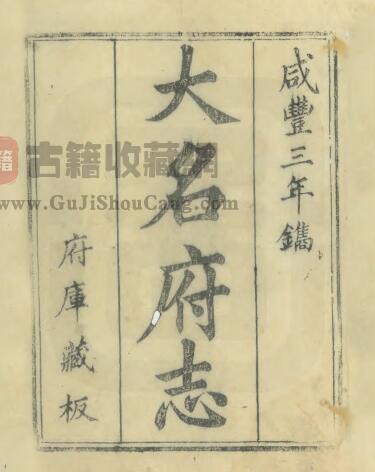 咸豐三年鐫
大名府志
府庫藏板
籍 古籍收藏网
www.GuJiShouCang.com